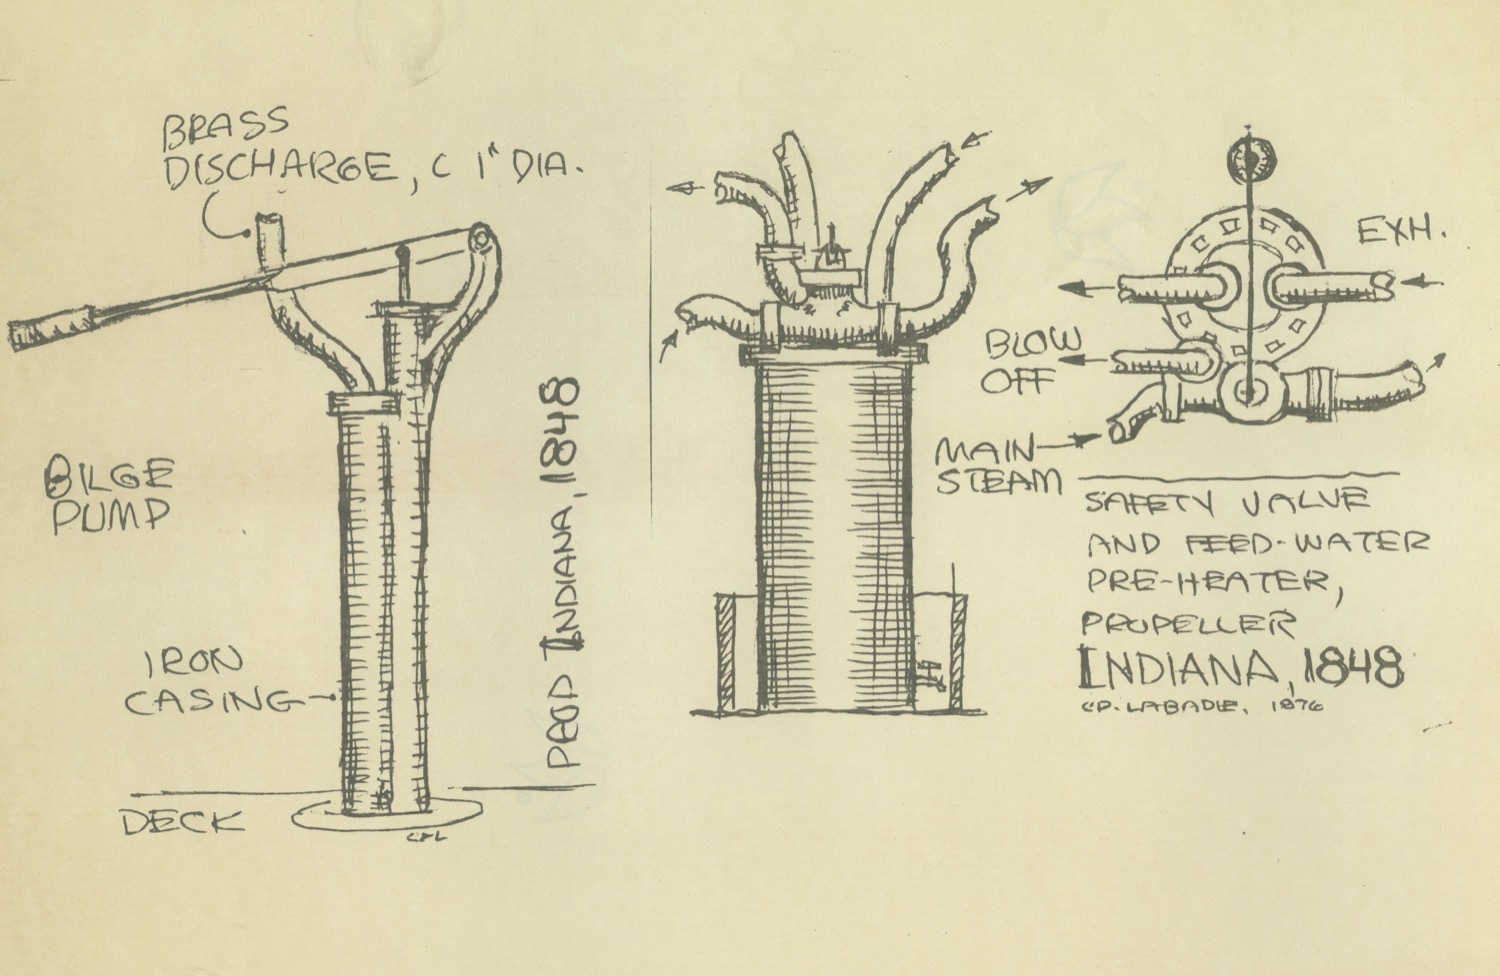 BRASS
DISCHARGE, C 1" DIA.
BILGE
PUMP
IRON
CASING
DECK
CPL
INDIANA, 1848
EXH.
BLOW
OFF
MAIN
STEAM
SAFETY VALVE
AND FEED-WATER
PRE-HEATER,
PROPELLER
INDIANA, 1848
C.P. LABADIE, 1976